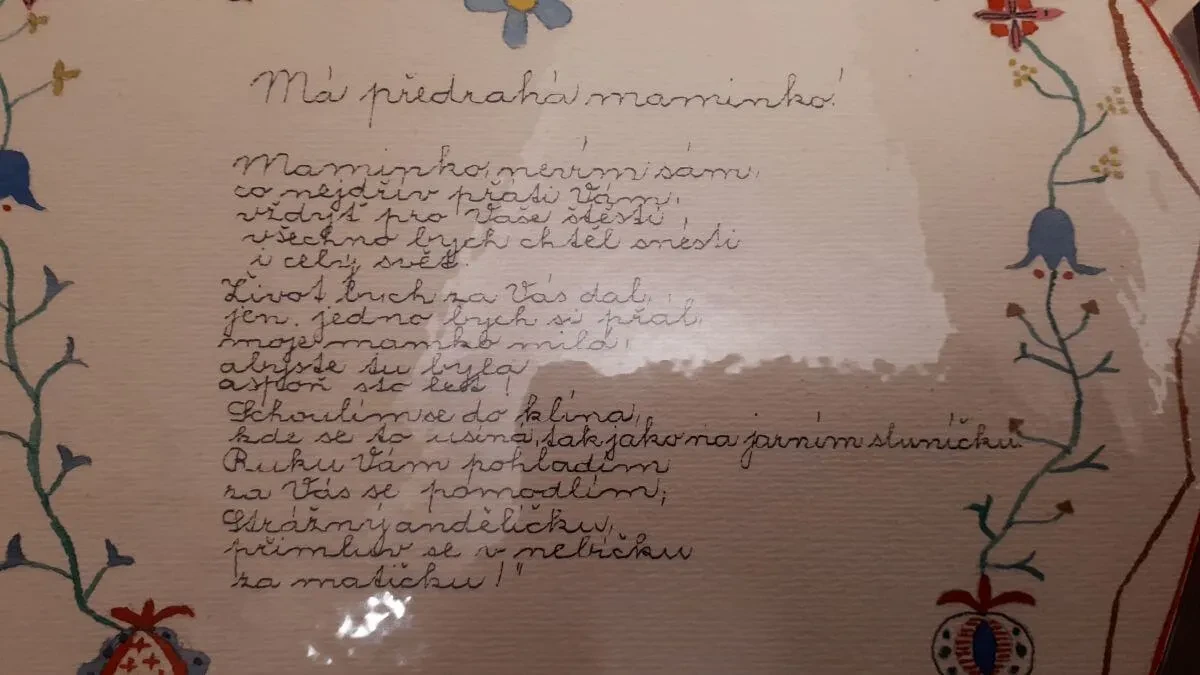 Má předrahá maminko!
Maminko, nevím sám,
co nejdřív přáti Vám,
vždyť pro Vaše štěstí
všechno bych chtěl snésti
i celý svět.
Život bych za Vás dal,
jen jedno bych si přál,
moje mamko milá,
abyste tu byla
aspoň sto let!
Schoulím se do klína,
kde se to usíná, tak jako na jarním sluníčku.
Ruku Vám pohladím
za Vás se pomodlím,
Strážný andělíčku,
přimluv se v nebíčku
za matičku!"